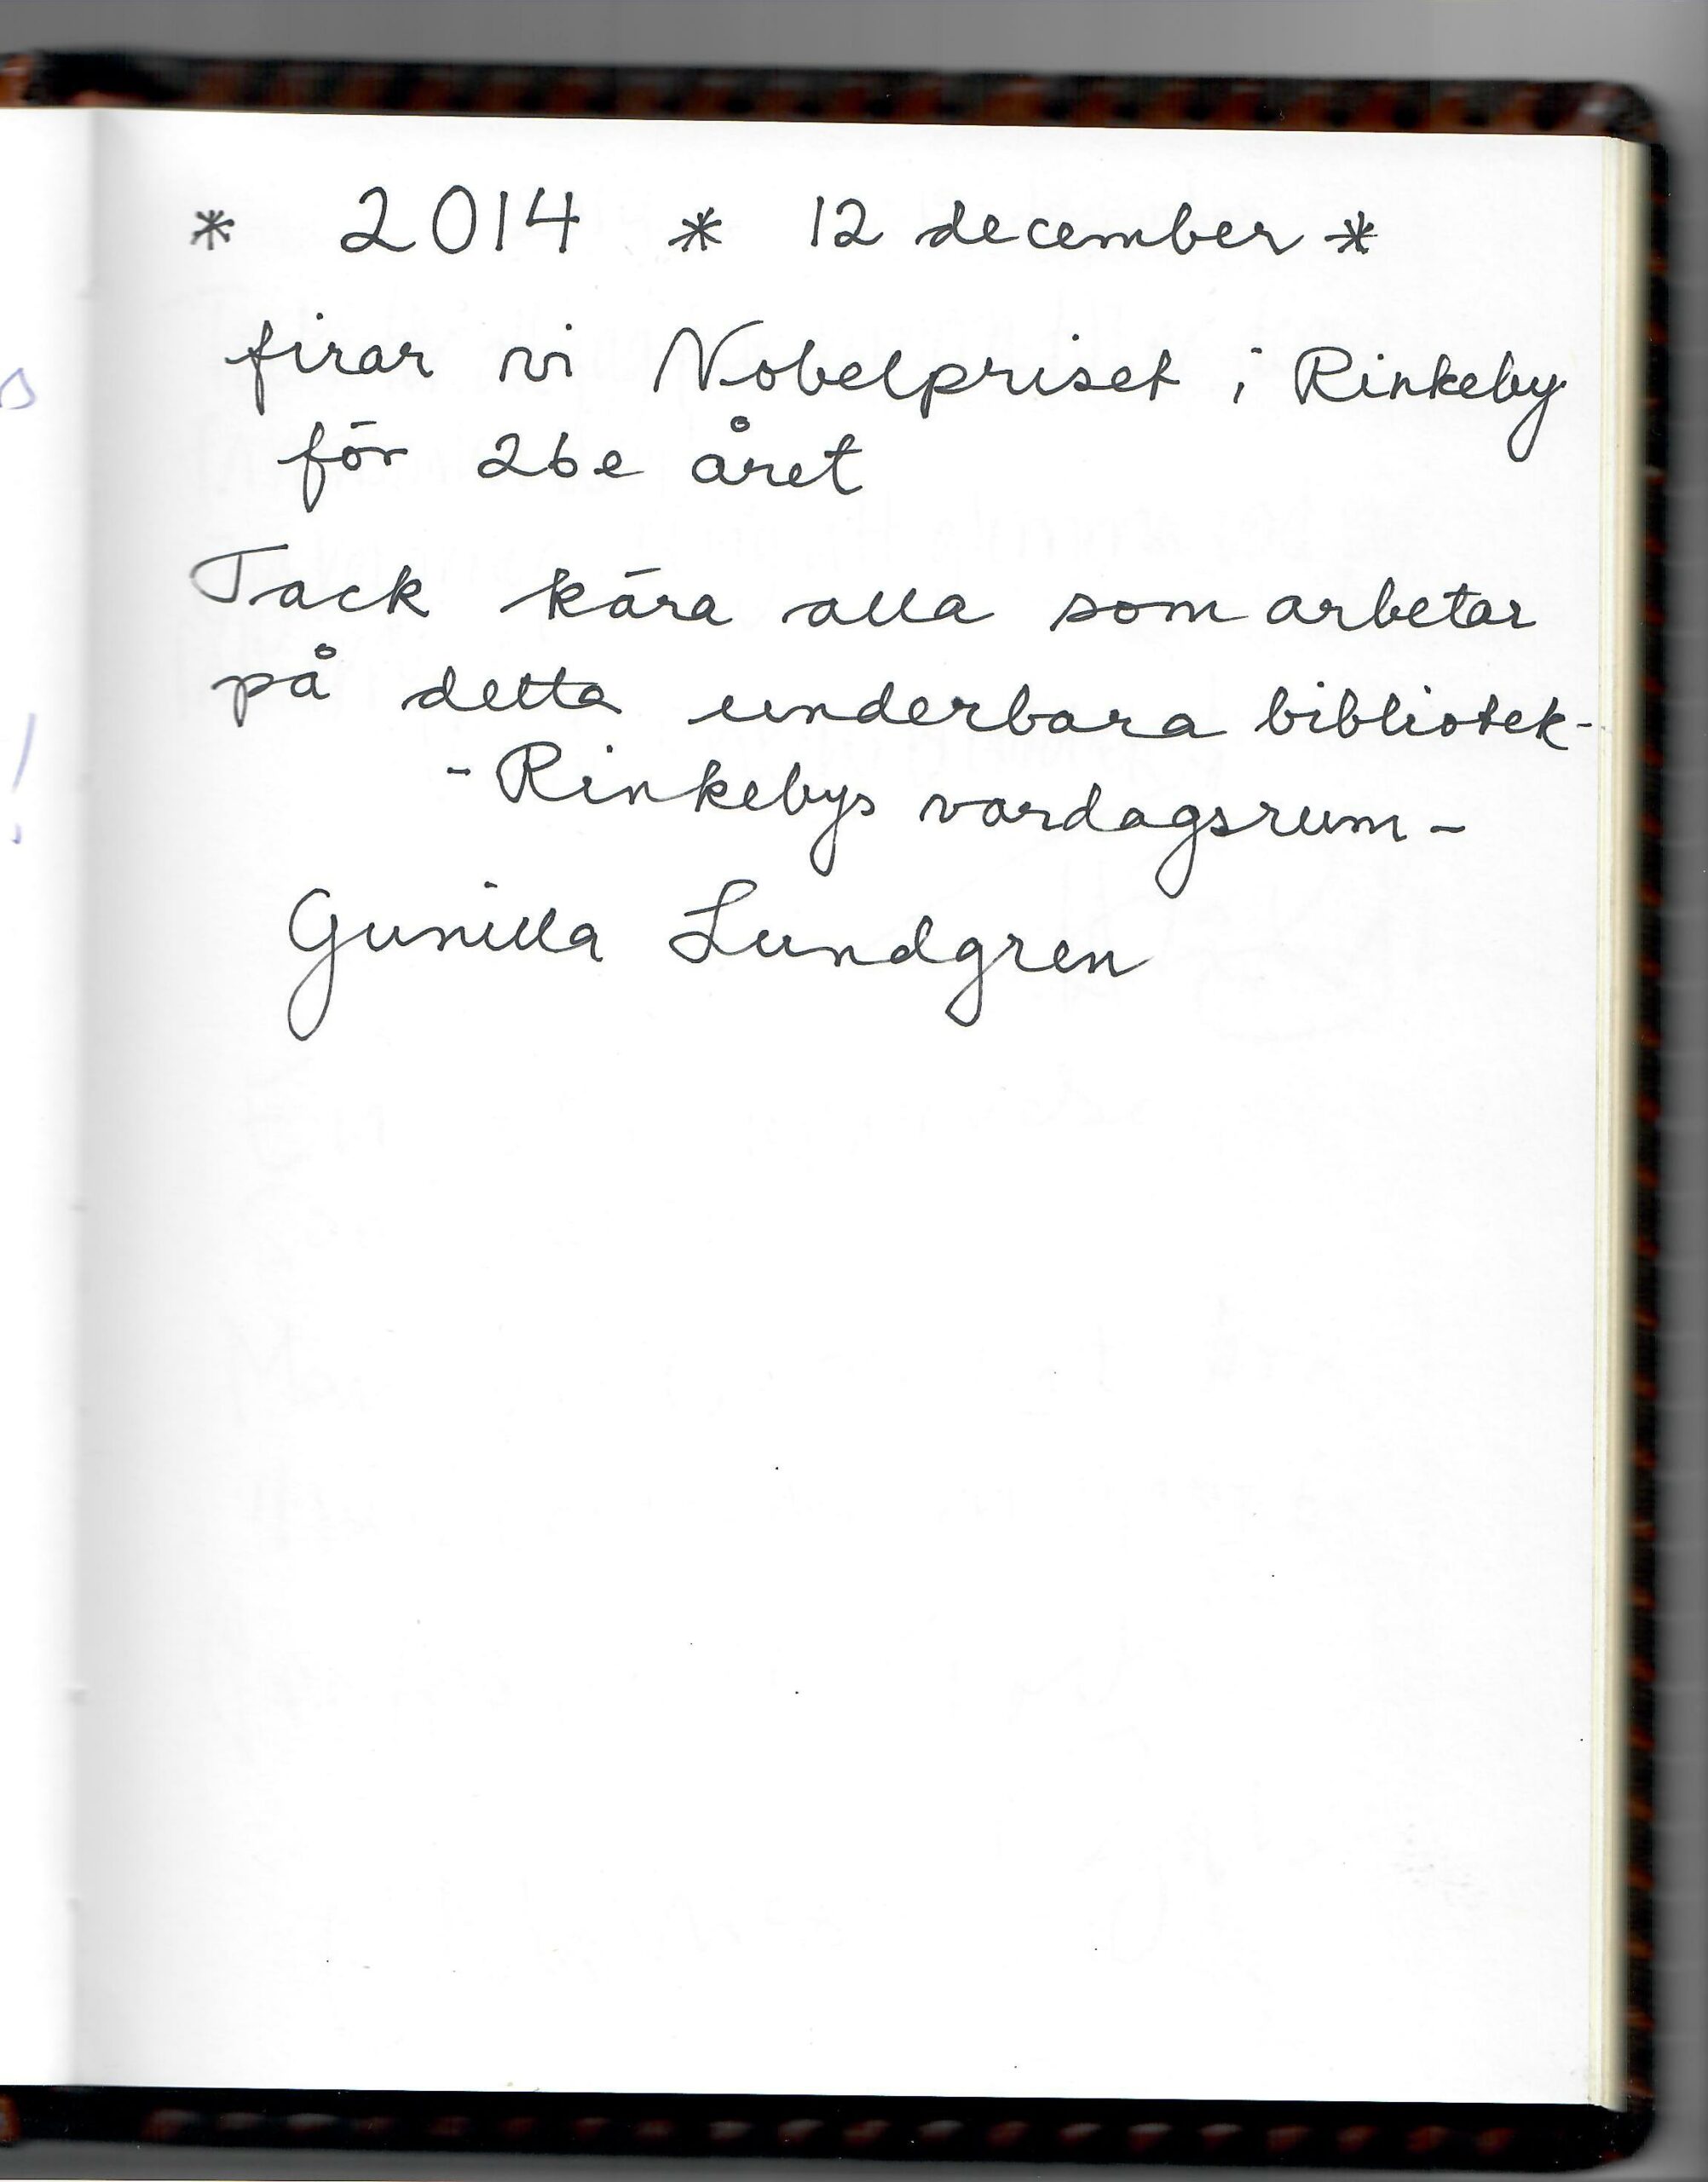 * 2014 * 12 december *
firar vi Nobelpriset i Rinkeby
för 26e året
Tack kära alla som arbetar
på detta underbara bibliotek-
- Rinkebys vardagsrum -
Gunilla Lundgren